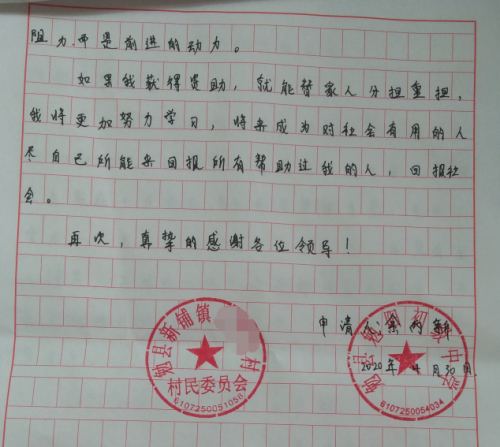 阻力.而是前进的动力。
如果我获得资助，就能替家人分担重担，
我将更加努力学习，将来成为对社会有用的人
尽自己所能来回报所有帮助过我的人，回报社
会。
再次，真挚的感谢各位领导！
申请人:余
2020年 4月30日
勉县新铺镇 村
村民委员会
6107250051058
勉县 初级中学
6107250054034